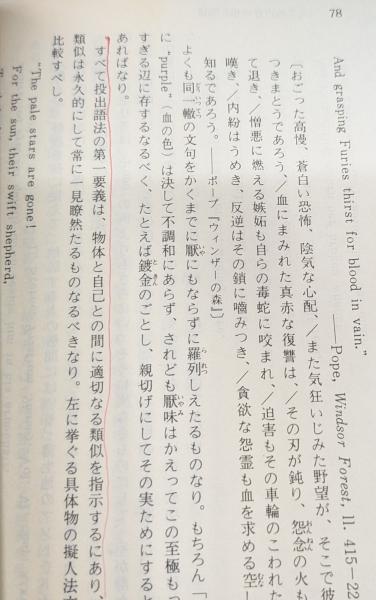 78
And grasping Furies thirst for blood in vain.”
——Pope, Windsor Forest, ll. 415—22
〔おごった高慢、蒼白い恐怖、陰気な心配、／また気狂いじみた野望が、そこで彼
つきまとうであろう、／血にまみれた真赤な復讐は、／その刃が鈍り、怨念の火も
て退き、／憎悪に燃える嫉妬も自らの毒蛇に咬まれ、／迫害もその車輪のこわれた
嘆き、／内紛はうめき、反逆はその鎖に嚙みつき、／貪欲な怨霊も血を求める空
知るであろう。——ポープ『ウィンザーの森』〕
よくも同一轍の文句をかくまでに厭にもならずに羅列しえたるものなり。もちろん「
に “purple”（血の色）は決して不調和にあらず、されども厭味はかえってこの至極も
すぎる辺に存するなるべく、たとえば鍍金のごとし、親切げにしてその実ためにすると
あればなり。
すべて投出語法の第一要義は、物体と自己との間に適切なる類似を指示するにあり、
類似は永久的にして常に一見瞭然たるものなるべきなり。左に挙ぐる具体物の擬人法
比較すべし。
“The pale stars are gone!
For the sun, their swift shepherd,